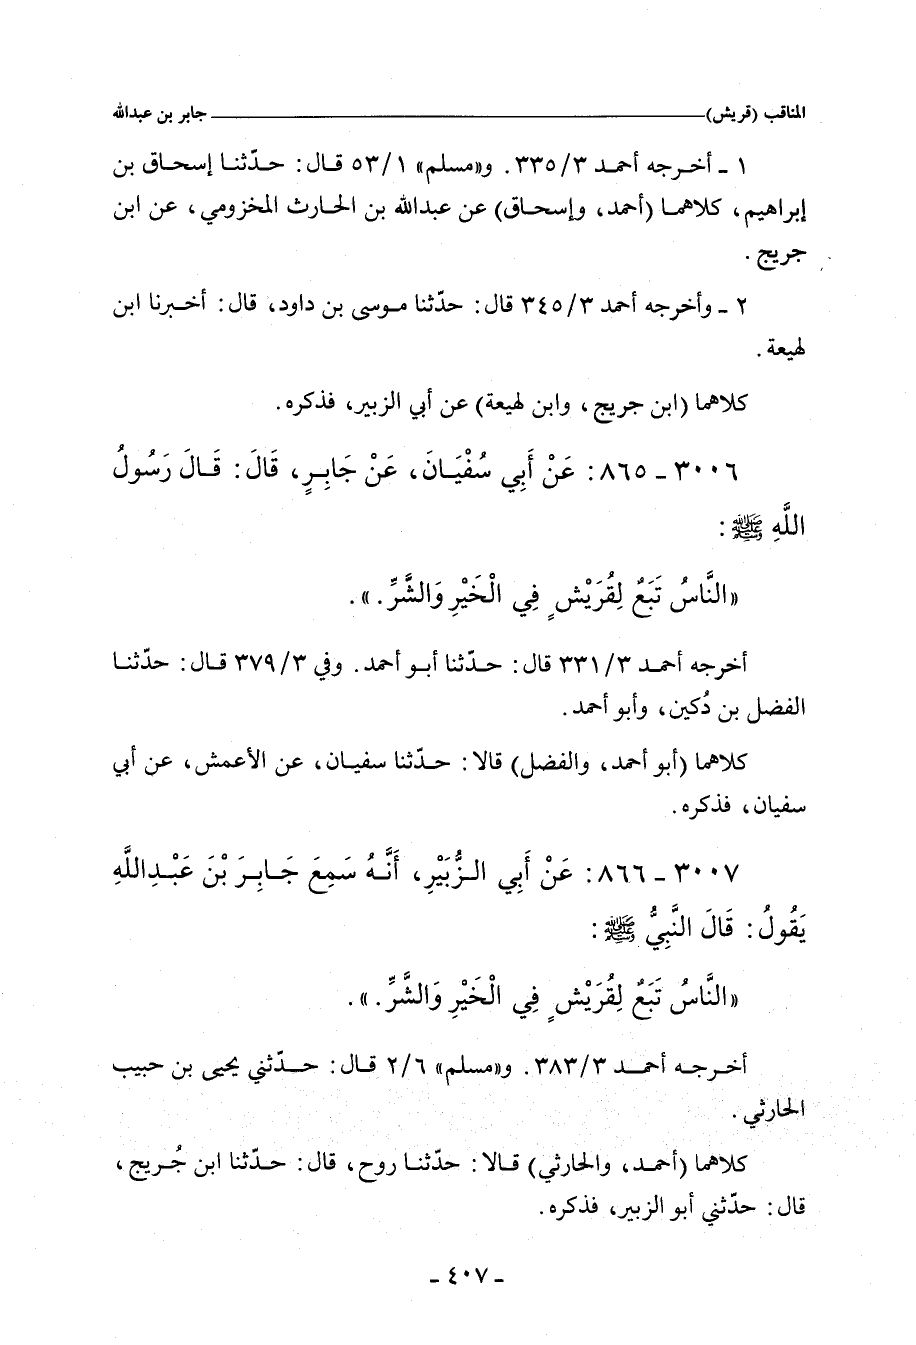 المناقب (قريش) جابر بن عبدالله
١ ـ أخرجه أحمد ٣٣٥/٣. و«مسلم» ٥٣/١ قال: حدّثنا إسحاق بن
إبراهيم، كلاهما (أحمد، وإسحاق) عن عبدالله بن الحارث المخزومي، عن ابن
جريج.
٢ ـ وأخرجه أحمد ٣٤٥/٣ قال: حدّثنا موسى بن داود، قال: أخبرنا ابن
لهيعة.
كلاهما (ابن جريج، وابن لهيعة) عن أبي الزبير، فذكره.
٣٠٠٦ ـ ٨٦٥: عَنْ أَبِي سُفْيَانَ، عَنْ جَابِرٍ، قَالَ: قَالَ رَسُولُ
اللَّهِ ﷺ:
«النَّاسُ تَبَعٌ لِقُرَيْشٍ فِي الْخَيْرِ وَالشَّرِّ.».
أخرجه أحمد ٣٣١/٣ قال: حدّثنا أبو أحمد. وفي ٣٧٩/٣ قال: حدّثنا
الفضل بن دُكين، وأبو أحمد.
كلاهما (أبو أحمد، والفضل) قالا: حدّثنا سفيان، عن الأعمش، عن أبي
سفيان، فذكره.
٣٠٠٧ ـ ٨٦٦: عَنْ أَبِي الزُّبَيْرِ، أَنَّهُ سَمِعَ جَابِرَ بْنَ عَبْدِاللَّهِ
يَقُولُ: قَالَ النَّبِيُّ ﷺ:
«النَّاسُ تَبَعٌ لِقُرَيْشٍ فِي الْخَيْرِ وَالشَّرِّ.».
أخرجه أحمد ٣٨٣/٣. و«مسلم» ٢/٦ قال: حدّثني يحيى بن حبيب
الحارثي.
كلاهما (أحمد، والحارثي) قالا: حدّثنا روح، قال: حدّثنا ابن جُريج،
قال: حدّثني أبو الزبير، فذكره.
ـ ٤٠٧ ـ